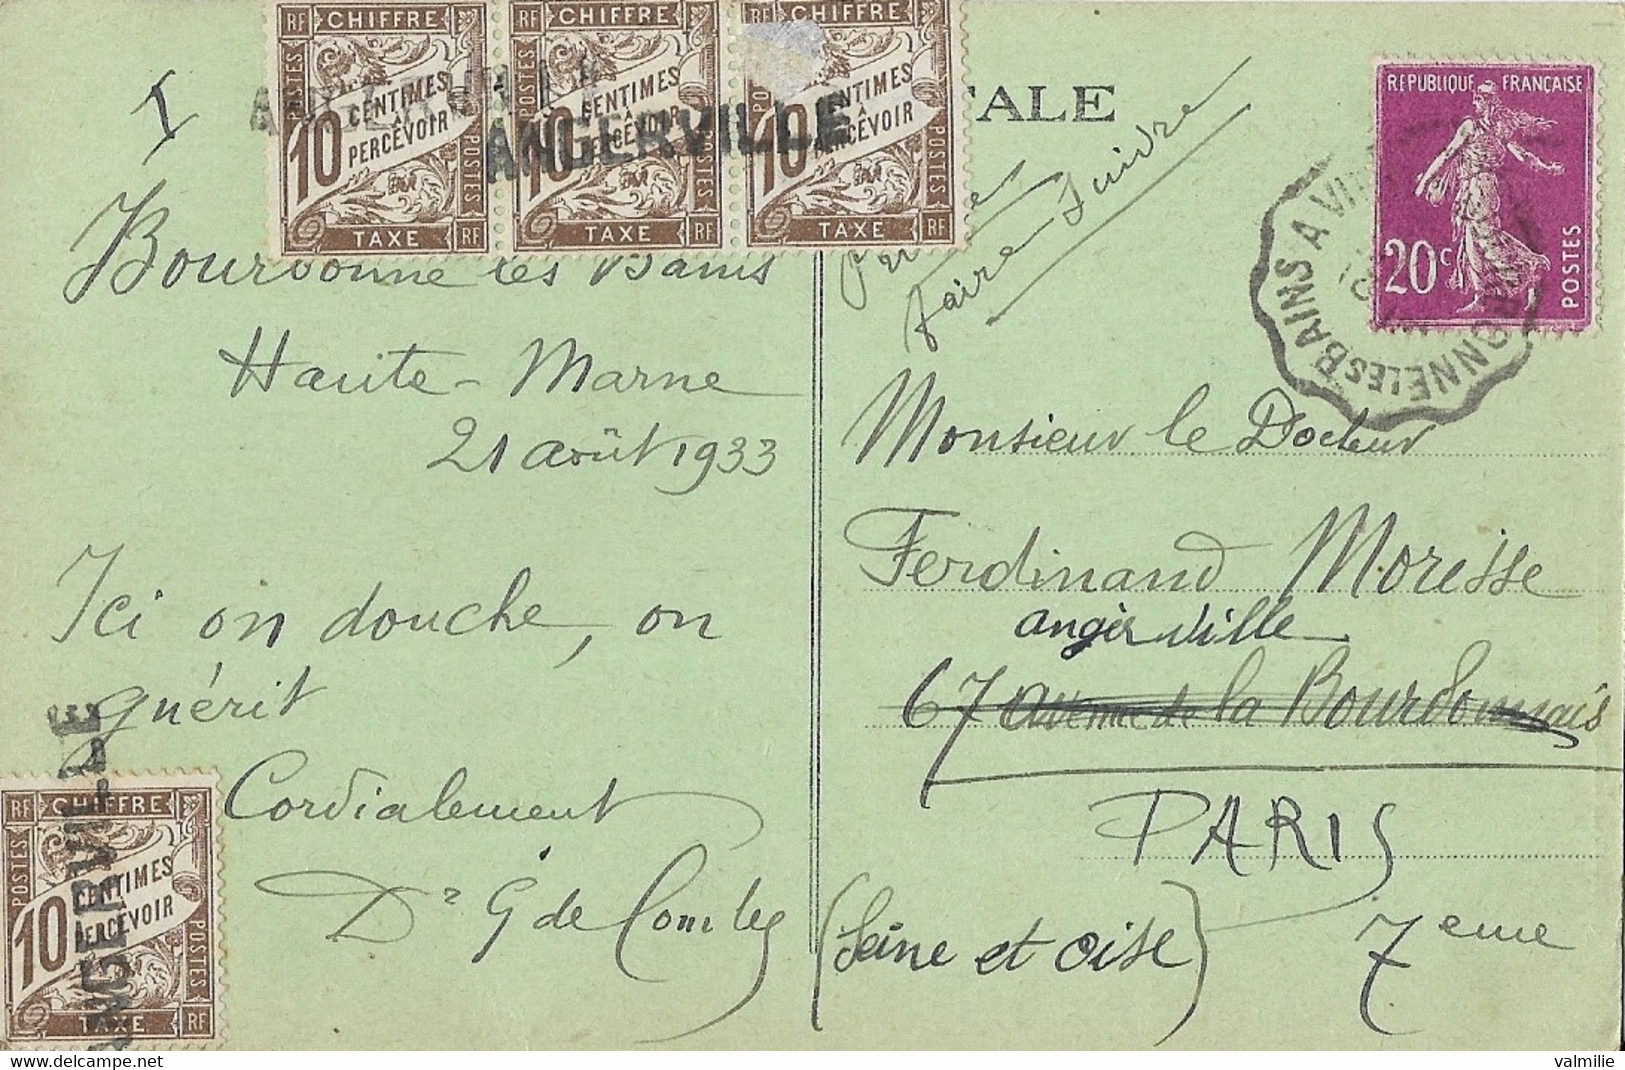 RF CHIFFRE RF
POSTES
10 CENTIMES
À
PERCEVOIR
POSTES
TAXE RF
CHIFFRE
POSTES
10 CENTIMES
À
PERCEVOIR
POSTES
TAXE RF
CHIFFRE RF
10 CENTIMES
PERCEVOIR
POSTES
TAXE RF
ANGERVILLE
ANGERVILLE
TALE
REPUBLIQUE FRANÇAISE
20c
POSTES
BAINS A
Bourbonne les Bains
Haute-Marne
21 août 1933
Ici on douche, on
guérit
Cordialement
Dr G de
faire-Suivre
Monsieur le Docteur
Ferdinand Moresse
angerville
67 avenue de la Bourdonnais
PARIS
(Seine et oise) 7eme
RF CHIFFRE RF
POSTES
10 CENTIMES
À
PERCEVOIR
POSTES
TAXE RF
ANGERVILLE
valmilie